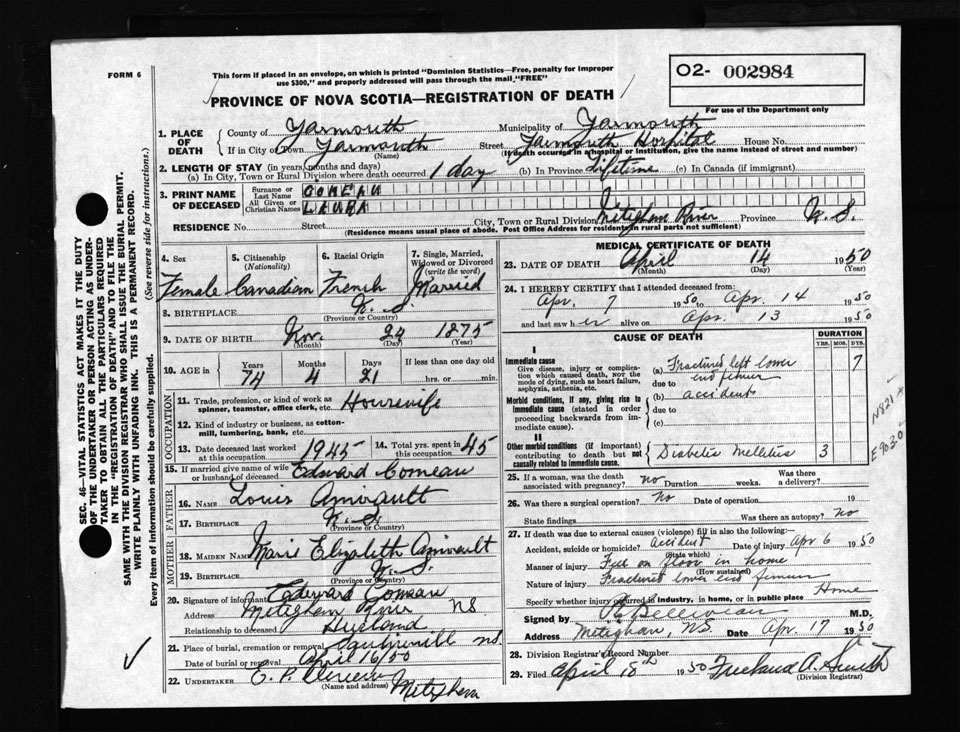 FORM 6
This form if placed in an envelope, on which is printed "Dominion Statistics—Free, penalty for improper
use $300," and properly addressed will pass through the mail, "FREE"
O2- 002984
For use of the Department only
PROVINCE OF NOVA SCOTIA—REGISTRATION OF DEATH
SEC. 46—VITAL STATISTICS ACT MAKES IT THE DUTY
OF THE UNDERTAKER OR PERSON ACTING AS UNDER-
TAKER TO OBTAIN ALL THE PARTICULARS REQUIRED
IN THE "REGISTRATION OF DEATH" AND TO FILE THE
SAME WITH THE DIVISION REGISTRAR WHO SHALL ISSUE THE BURIAL PERMIT.
WRITE PLAINLY WITH UNFADING INK. THIS IS A PERMANENT RECORD.
(See reverse side for instructions.)
Every item of information should be carefully supplied.
1. PLACE OF DEATH
County of Yarmouth Municipality of Yarmouth
If in City or Town Yarmouth (Name) Street Yarmouth Hospital House No.
(If death occured in a hospital or institution, give the name instead of street and number)
2. LENGTH OF STAY (in years, months and days)
(a) In City, Town or Rural Division where death occurred 1 day (b) In Province Lifetime (c) In Canada (if immigrant)
3. PRINT NAME OF DECEASED
Surname or Last Name COMEAU
All Given or Christian Names LAURA
RESIDENCE No. Street City, Town or Rural Division Metighan River Province N.S.
(Residence means usual place of abode. Post Office Address for residents in rural parts not sufficient)
4. Sex Female
5. Citizenship (Nationality) Canadian
6. Racial Origin French
7. Single, Married, Widowed or Divorced (write the word) Married
8. BIRTHPLACE N.S. (Province or Country)
9. DATE OF BIRTH Nov. (Month) 24 (Day) 1875 (Year)
10. AGE in Years 74 Months 4 Days 21 If less than one day old hrs. or min.
OCCUPATION
11. Trade, profession, or kind of work as spinner, teamster, office clerk, etc. Housewife
12. Kind of industry or business, as cotton-mill, lumbering, bank, etc.
13. Date deceased last worked at this occupation 1945 14. Total yrs. spent in this occupation 45
15. If married give name of wife or husband of deceased Edward Comeau
FATHER
16. NAME Louis Amirault
17. BIRTHPLACE N.S. (Province or Country)
MOTHER
18. MAIDEN NAME Marie Elizabeth Amirault
19. BIRTHPLACE N.S. (Province or Country)
20. Signature of informant Edward Comeau
Address Metighan River NS
Relationship to deceased Husband
21. Place of burial, cremation or removal NS
Date of burial or removal April 16/50
22. UNDERTAKER E. P. (Name and address) Metighan
MEDICAL CERTIFICATE OF DEATH
23. DATE OF DEATH April (Month) 14 (Day) 1950 (Year)
24. I HEREBY CERTIFY that I attended deceased from:
Apr. 7 1950 to Apr. 14 1950
and last saw her alive on Apr. 13 1950
CAUSE OF DEATH DURATION YRS. MOS. DYS.
I
Immediate cause
Give disease, injury or complication which caused death, NOT the mode of dying, such as heart failure, asphyxia, asthenia, etc.
(a) Fractured left lower end femur 7
due to
Morbid conditions, if any, giving rise to immediate cause (stated in order proceeding backwards from immediate cause).
(b) accident
due to
(c)
II
Other morbid conditions (if important) contributing to death but not causally related to immediate cause.
Diabetes Mellitus 3
N821 x
E9030
25. If a woman, was the death associated with pregnancy? No Duration weeks. Was there a delivery?
26. Was there a surgical operation? No Date of operation 19
State findings Was there an autopsy? No
27. If death was due to external causes (violence) fill in also the following:
Accident, suicide or homicide? accident (State which) Date of injury Apr 6 1950
Manner of injury Fell on floor in home (How sustained)
Nature of injury Fractured lower end femur
Specify whether injury occurred in industry, in home, or in public place Home
Signed by Belliveau M.D.
Address Metighan, NS Date Apr. 17 1950
28. Division Registrar's Record Number
29. Filed April 18th 1950 Freeland A. Smith (Division Registrar)